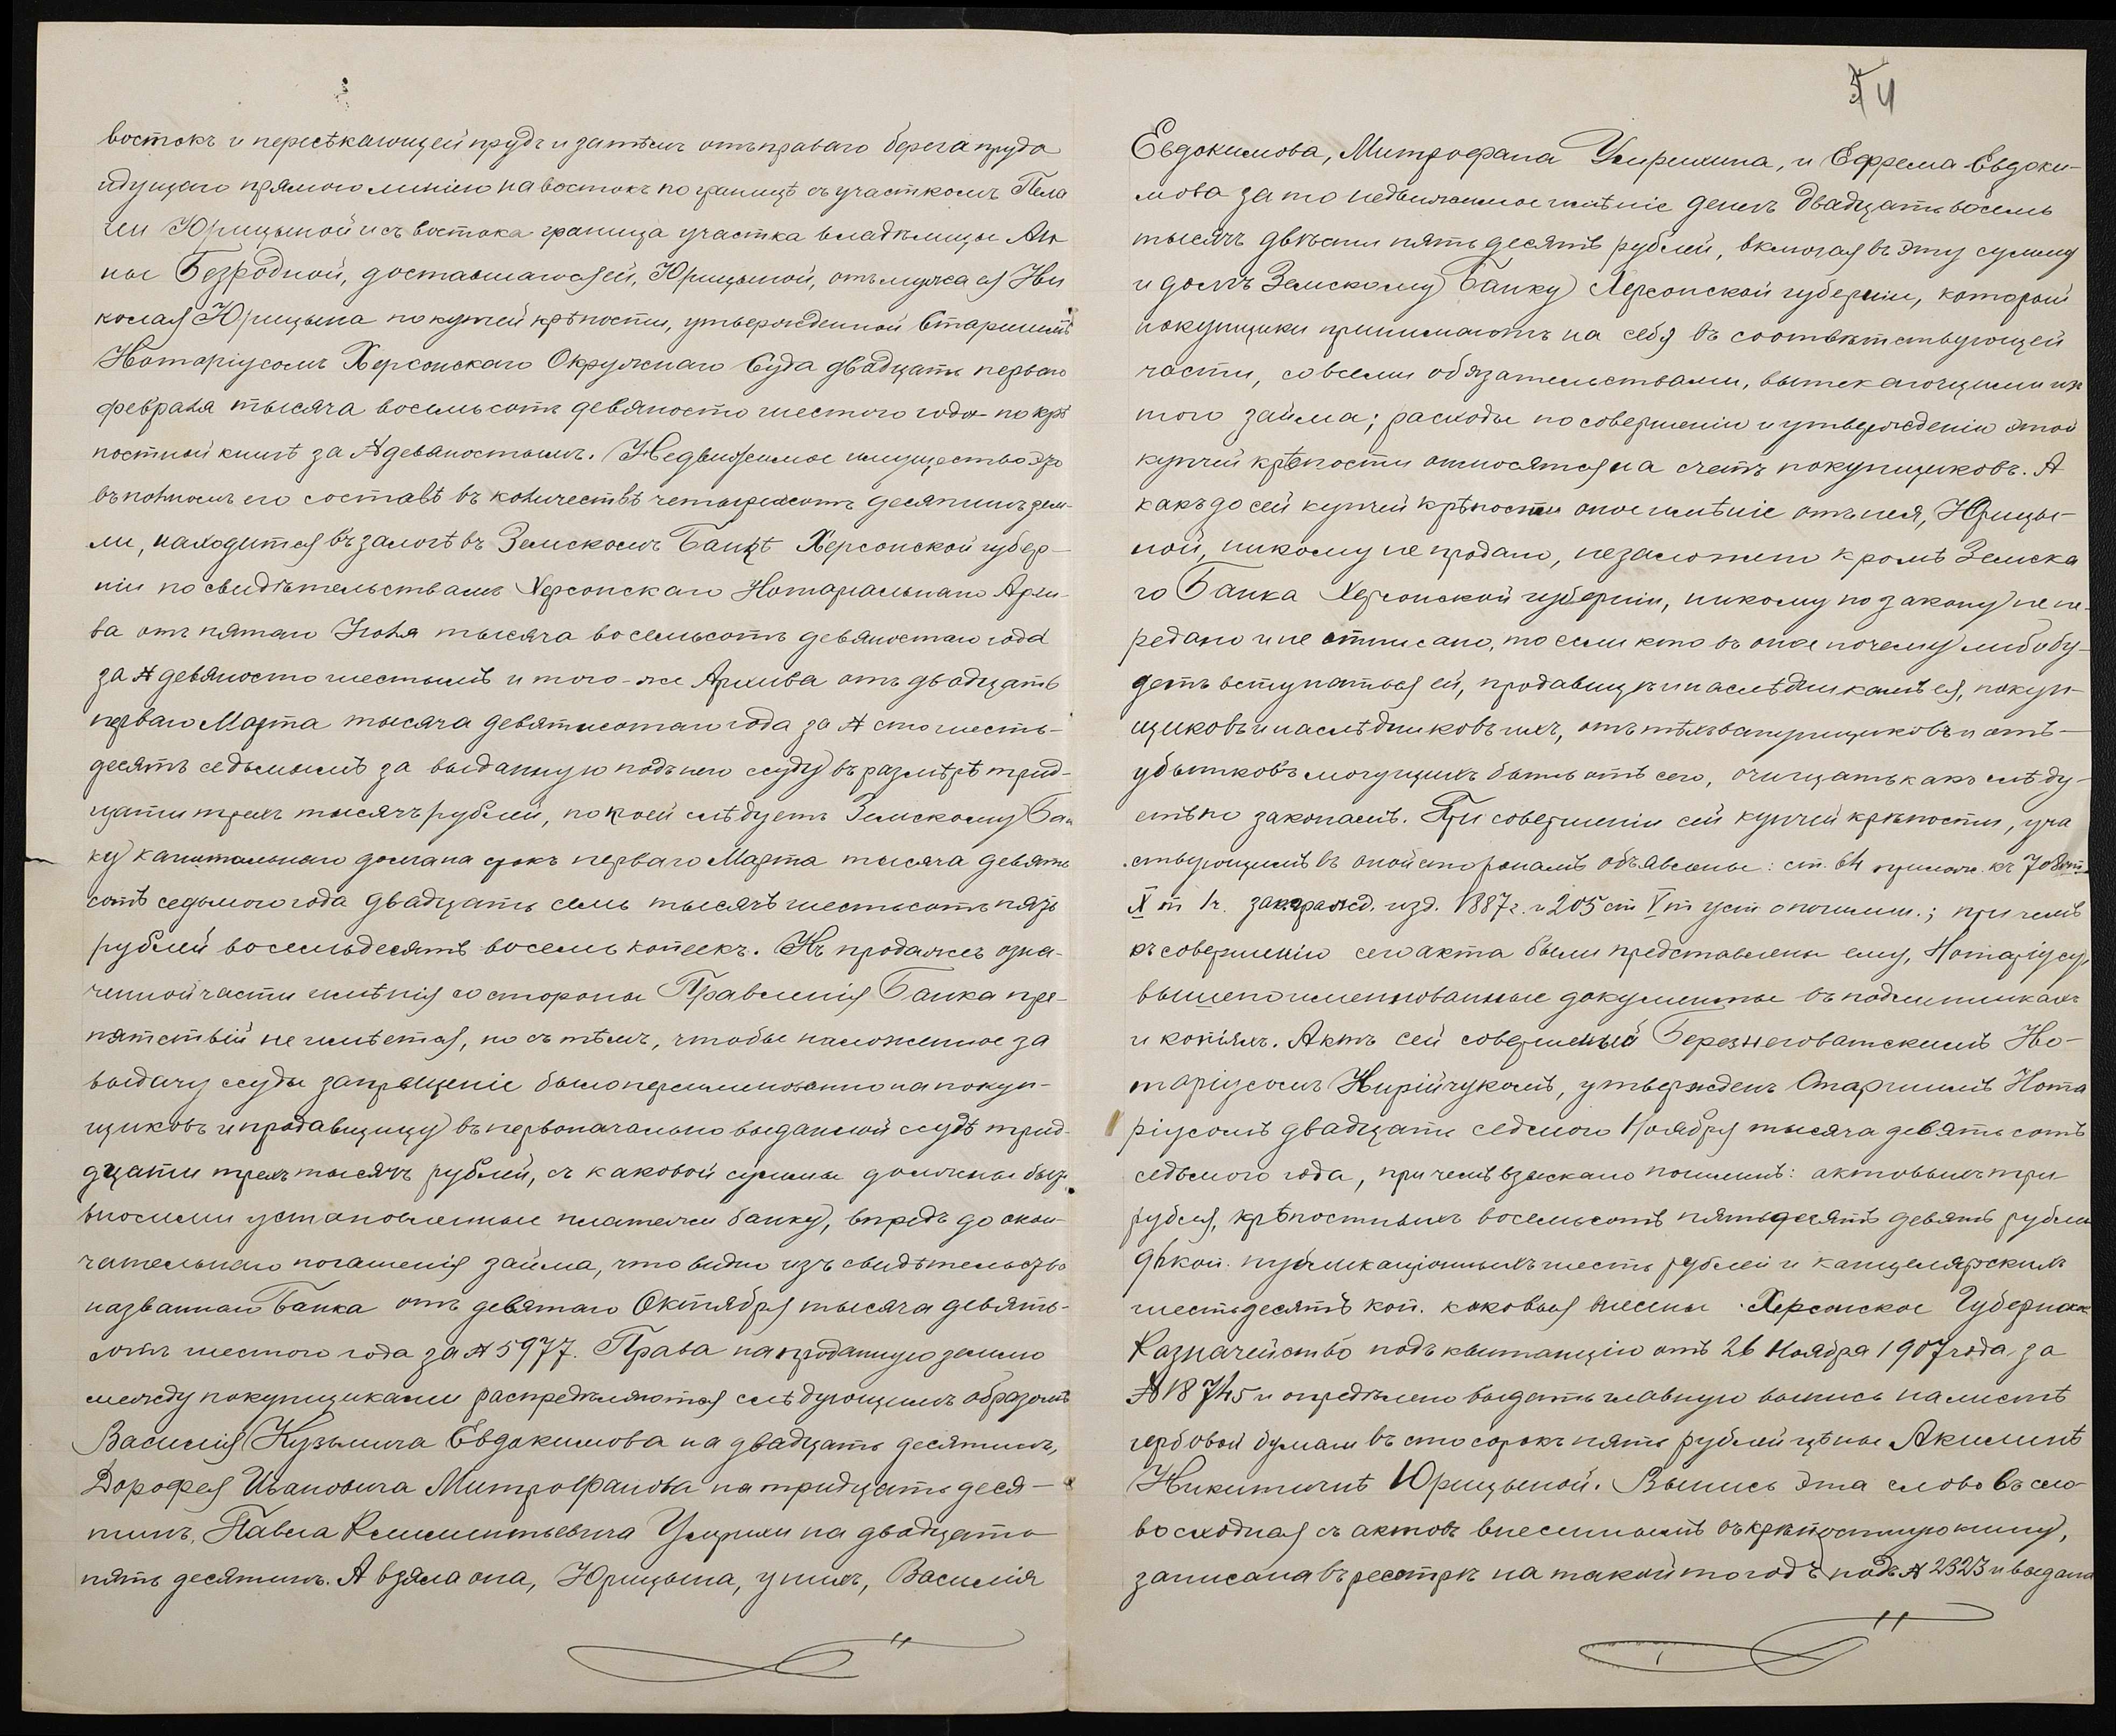 востокъ и пересѣкающей прудъ и затѣмъ отъ праваго берега пруда
идущаго прямою линіею на востокъ по границѣ съ участкомъ Пела
геи Юрицыной и съ востока граница участка владѣлицы Ан
ны Безродной, доставшагося ей, Юрицыной, отъ мужа ея Ни
колая Юрицына по купчей крѣпости, утвержденной Старшимъ
Нотаріусомъ Херсонскаго Окружнаго Суда двадцать перваго
февраля тысяча восемьсотъ девяносто шестого года по крѣ
постной книгѣ за № девяностымъ. Недвижимое имущество это
въ полномъ его составѣ въ количествѣ четырехсотъ десятинъ зем-
ли, находится въ залогѣ въ Земскомъ Банкѣ Херсонской губер-
ніи по свидѣтельствамъ Херсонскаго Нотаріальнаго Архи-
ва отъ пятаго Іюля тысяча восемьсотъ девяностаго года
за № девяносто шестымъ и того-же Архива отъ двадцать
перваго Марта тысяча девятисотаго года за № сто шесть-
десятъ седьмымъ за выданную подъ него ссуду въ размѣрѣ трид-
цати трехъ тысячъ рублей, по коей слѣдуетъ Земскому Бан
ку капитальнаго долга на срокъ перваго Марта тысяча девять
сотъ седьмого года двадцать семь тысячъ шестьсотъ пять
рублей восемьдесятъ восемь копеекъ. Къ продажѣ озна-
ченной части имѣнія со стороны Правленія Банка пре-
пятствій не имѣется, но съ тѣмъ, чтобы наложенное за
выдачу ссуды запрещеніе было переименовано на покуп-
щиковъ и продавщицу въ первоначально выданной ссудѣ трид-
дцати трехъ тысячъ рублей, съ каковой суммы должны быть
вносимы установленные платежи банку, впредь до окон-
чательнаго погашенія займа, что видно изъ свидѣтельства
названнаго Банка отъ девятаго Октября тысяча девять-
сотъ шестого года за № 5977. Права на проданную землю
между покупщиками распредѣляются слѣдующимъ образомъ
Василія Кузьмича Евдокимова на двадцать десятинъ,
Дорофея Ивановича Митрофанова на тридцать деся-
тинъ, Павла Климентьевича Умрихи на двадцать
пять десятинъ. А взяла она, Юрицына, у нихъ, Василія
4
Евдокимова, Митрофана Умрихина, и Ефрема Евдоки-
мова за то недвижимое имѣніе денегъ двадцать восемь
тысячъ двѣсти пятьдесятъ рублей, включая въ эту сумму
и долгъ Земскому Банку Херсонской губерніи, который
покупщики принимаютъ на себя въ соотвѣтствующей
части, со всеми обязательствами, вытекающими изъ
того займа; расходы по совершенію и утвержденію этой
купчей крѣпости относятся на счетъ покупщиковъ. А
какъ до сей купчей крѣпости оное имѣніе отъ нея, Юрицы-
ной, никому не продано, не заложено кромѣ Земска
го Банка Херсонской губерніи, никому по закону не пе-
редано и не отписано, то если кто въ оное почему либо бу-
детъ вступаться ей, продавщицѣ и наслѣдникамъ ея, покуп-
щиковъ и наслѣдниковъ ихъ, отъ тѣхъ вступщиковъ и отъ-
убытковъ могущихъ быть отъ сего, очищать какъ слѣду-
етъ по законамъ. При совершеніи сей купчей крѣпости, уча
ствующимъ въ оной сторонамъ объявлены: ст. 64 примѣч. къ 708 ст.
X т 1ч. зак. гражд. изд. 1887г. и 205 ст V т уст о пошлин.; при чемъ
къ совершенію сего акта были представлены ему, Нотаріусу,
вышепоименнованные документы въ подлинникахъ
и копіяхъ. Актъ сей совершеный Березнеговатскимъ Но-
таріусомъ Кирійчукомъ, утвержденъ Старшимъ Нота
ріусомъ двадцать седмого Ноября тысяча девятьсотъ
седьмого года, при чемъ взыскано пошлинъ: актовыхъ три
рубля, крѣпостныхъ восемьсотъ пятьдесятъ девять рублей
96 коп. публикаціонныхъ шесть рублей и канцелярскихъ
шестьдесятъ коп. каковыя внесены Херсонское Губернское
Казначейство подъ квитанцію отъ 26 Ноября 1907 года за
№ 18745 и опредѣлено выдать главную выпись на листѣ
гербовой бумаги въ сто сорокъ пять рублей цѣны Акилинѣ
Никитичнѣ Юрицыной. Выпись эта слово въ сло-
во сходная съ актовъ внесеннымъ въ крѣпостную книгу,
записана въ реестръ на такой то годъ подъ № 2323 и выдана